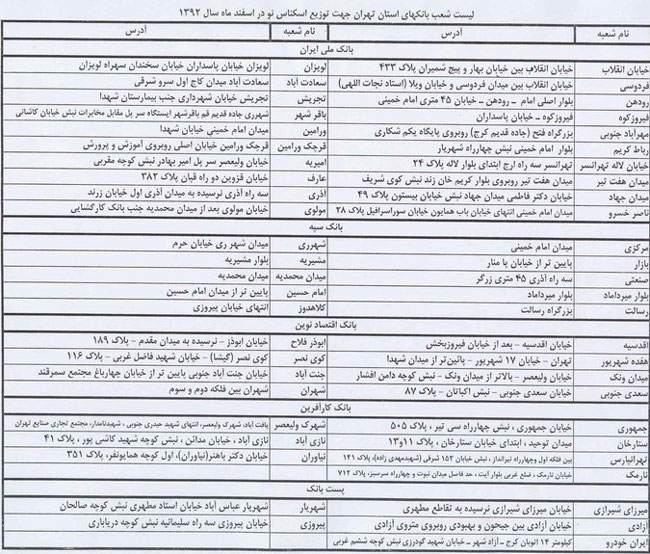 لیست شعب بانکهای استان تهران جهت توزیع اسکناس نو در اسفند ماه سال ۱۳۹۲
نام شعبه آدرس نام شعبه آدرس
بانک ملی ایران
خیابان انقلاب خیابان انقلاب بین خیابان بهار و پیچ شمیران پلاک ۴۳۳ لویزان لویزان خیابان پاسداران خیابان سخندان سهراه لویزان
فردوسی خیابان انقلاب بین میدان فردوسی و خیابان ویلا (استاد نجات اللهی) سعادت آباد سعادت آباد میدان کاج اول سرو شرقی
رودهن بلوار اصلی امام _ رودهن - خیابان ۴۵ متری امام خمینی تجریش تجریش خیابان شهرداری جنب بیمارستان شهدا
فیروزکوه فیروزکوه _ خیابان پاسداران باقر شهر شهرری جاده قدیم قم باقرشهر ایستگاه سر پل مقابل مخابرات نبش خیابان کاشانی
مهرآباد جنوبی بزرگراه فتح (جاده قدیم کرج) روبروی پایگاه یکم شکاری ورامین میدان امام خمینی خیابان شهدا
رباط کریم بلوار امام خمینی نبش چهارراه شهریار قرچک ورامین قرچک ورامین خیابان اصلی روبروی آموزش و پرورش
خیابان لاله تهرانسر تهرانسر سه راه ارج ابتدای بلوار لاله پلاک ۲۴ امیریه خیابان ولیعصر سر پل امیر بهادر نبش کوچه مقربی
میدان هفت تیر میدان هفت تیر روبروی بلوار کریم خان زند نبش کوی شریف عارف خیابان قزوین دو راه قپان پلاک ۳۸۲
میدان جهاد خیابان دکتر فاطمی میدان جهاد نبش خیابان بیستون پلاک ۴۹ آذری سه راه آذری نرسیده به میدان آذری اول خیابان زرند
ناصر خسرو میدان امام خمینی انتهای خیابان باب همایون خیابان سوراسرافیل پلاک ۲۸ مولوی خیابان مولوی بعد از میدان محمدیه جنب بانک کارگشایی
بانک سپه
مرکزی میدان امام خمینی شهرری میدان شهر ری خیابان حرم
بازار پایین تر از خیابان پا منار مشیریه بلوار مشیریه
صنعتی سه راه آذری ۴۵ متری زرگر میدان محمدیه میدان محمدیه
بلوار میرداماد بلوار میرداماد امام حسین پایین تر از میدان امام حسین
رسالت بزرگراه رسالت کلاهدوز انتهای خیابان پیروزی
بانک اقتصاد نوین
اقدسیه خیابان اقدسیه - بعد از خیابان فیروزبخش ابوذر فلاح خیابان ابوذر - نرسیده به میدان مقدم - پلاک ۱۸۹
هفده شهریور تهران - خیابان ۱۷ شهریور - پائین‌تر از میدان شهدا کوی نصر کوی نصر (گیشا) - خیابان شهید فاضل غربی - پلاک ۱۱۶
میدان ونک خیابان ولیعصر - بالاتر از میدان ونک - نبش کوچه دامن افشار جنت آباد خیابان جنت آباد جنوبی پایین تر از خیابان چهارباغ مجتمع سمرقند
سعدی جنوبی خیابان سعدی جنوبی - نبش اکباتان - پلاک ۸۷ شهران شهران بین فلکه دوم و سوم
بانک کارآفرین
جمهوری خیابان جمهوری ، نبش چهارراه سی تیر ، پلاک ۵۰۵ شهرک ولیعصر یافت آباد، شهرک ولیعصر، انتهای شهید حیدری جنوبی ، شهیدنامدار، مجتمع تجاری صنایع تهران
ستارخان میدان توحید ، ابتدای خیابان ستارخان ، پلاک ۱۱و۱۳ نازی آباد نازی آباد ، خیابان مدائن ، نبش کوچه شهید کاشی پور ، پلاک ۴۱
تهرانپارس بین فلکه اول وچهارراه تیرانداز ، نبش خیابان ۱۵۲ شرقی (شهیدمهدی زاده)، پلاک ۱۴۱ نیاوران خیابان دکتر باهنر(نیاوران)، اول کوچه همایونفر، پلاک ۳۵۱
نارمک خیابان نارمک ، ضلع غربی بلوار آیت ، حد فاصل میدان نبوت و چهارراه سرسبز، پلاک ۷۱۲
پست بانک
میرزای شیرازی خیابان میرزای شیرازی نرسیده به تقاطع مطهری شهریار شهریار عباس آباد خیابان استاد مطهری نبش کوچه صالحان
آزادی خیابان آزادی بین جیحون و بهبودی روبروی متروی آزادی پیروزی خیابان پیروزی سه راه سلیمانیه نبش کوچه دریاباری
ایران خودرو کیلومتر ۱۴ اتوبان کرج - آزاد شهر - خیابان شهید گودرزی نبش کوچه ششم غربی